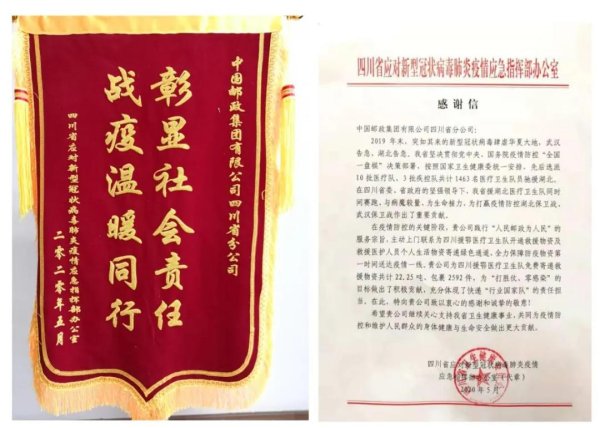 中国邮政集团有限公司四川省分公司
彰显社会责任
战疫温暖同行
四川省应对新型冠状病毒肺炎疫情应急指挥部办公室
二零二零年五月
四川省应对新型冠状病毒肺炎疫情应急指挥部办公室
感谢信
中国邮政集团有限公司四川省分公司：
2019 年末，突如其来的新型冠状病毒肆虐华夏大地，武汉
告急、湖北告急。我省坚决贯彻党中央、国务院疫情防控“全国
一盘棋”决策部署，按照国家卫生健康委统一安排，先后选派
10 批医疗队、3 批疾控队共计 1463 名医疗卫生队员驰援湖北。
在四川省委、省政府的坚强领导下，我省援湖北医疗卫生队同时
间赛跑、与病魔较量，为生命接力，为打赢疫情防控湖北保卫战、
武汉保卫战作出了重要贡献。
在疫情防控的关键阶段，贵公司践行“人民邮政为人民”的
服务宗旨，主动上门联系为四川援鄂医疗卫生队开通救援物资及
救援医护人员个人生活物资寄递绿色通道，全力保障防疫物资第
一时间送达疫情一线。贵公司为四川援鄂医疗卫生队免费寄递救
援物资共计 22.25 吨、包裹 2592 件，为“打胜仗、零感染”的
目标做出了积极贡献，充分体现了快递“行业国家队”的责任担
当。在此，特向贵公司致以衷心的感谢和诚挚的敬意！
希望贵公司继续关心支持我省卫生健康事业，共同为疫情防
控和维护人民群众的身体健康与生命安全做出更大贡献。
四川省应对新型冠状病毒肺炎疫情
应急指挥部办公室（代章）
2020 年 5 月